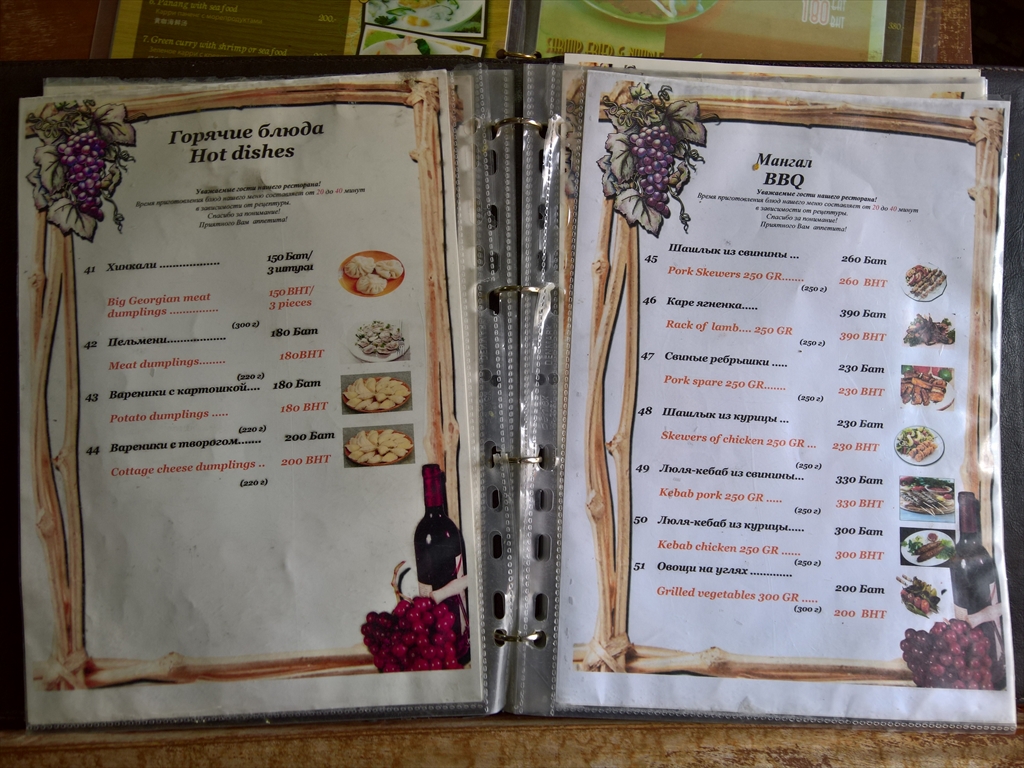 6. Panang with sea food
200.-
7. Green curry with shrimp or sea food
180
BAHT
380
Горячие блюда
Hot dishes
Уважаемые гости нашего ресторана!
Время приготовления блюд нашего меню составляет от 20 до 40 минут
в зависимости от рецептуры.
Спасибо за понимание!
Приятного Вам аппетита!
41 Хинкали ................... 150 Бат/
3 штуки
Big Georgian meat 150 BHT/
dumplings .............. 3 pieces
(300 г)
42 Пельмени.................. 180 Бат
Meat dumplings........ 180BHT
(220 г)
43 Вареники с картошкой.... 180 Бат
Potato dumplings ..... 180 BHT
(220 г)
44 Вареники с творогом....... 200 Бат
Cottage cheese dumplings .. 200 BHT
(220 г)
Мангал
BBQ
Уважаемые гости нашего ресторана!
Время приготовления блюд нашего меню составляет от 20 до 40 минут
в зависимости от рецептуры.
Спасибо за понимание!
Приятного Вам аппетита!
45 Шашлык из свинины ... 260 Бат
Pork Skewers 250 GR....... 260 BHT
(250 г)
46 Каре ягненка..... 390 Бат
Rack of lamb.... 250 GR 390 BHT
(250 г)
47 Свиные ребрышки ..... 230 Бат
Pork spare 250 GR....... 230 BHT
(250 г)
48 Шашлык из курицы ... 230 Бат
Skewers of chicken 250 GR ... 230 BHT
(250 г)
49 Люля-кебаб из свинины... 330 Бат
Kebab pork 250 GR ..... 330 BHT
(250 г)
50 Люля-кебаб из курицы..... 300 Бат
Kebab chicken 250 GR ...... 300 BHT
(250 г)
51 Овощи на углях ............. 200 Бат
Grilled vegetables 300 GR ..... 200 BHT
(300 г)